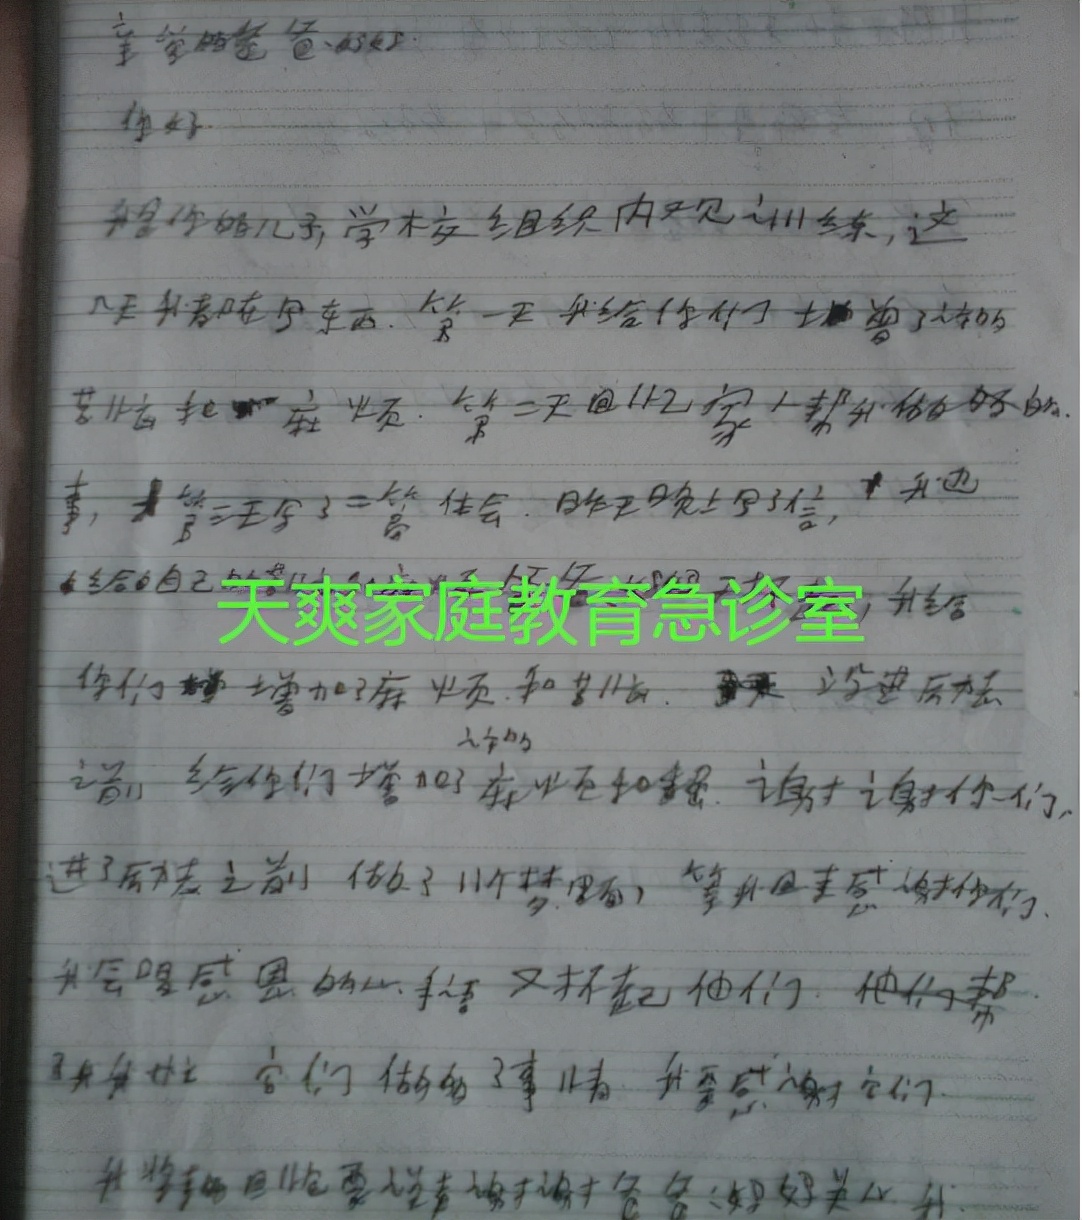 亲爱的爸爸妈妈.
你好.
我是你的儿子,学校组织内观训练,这
几天我都在写东西.第一天我给你们增了许多的
苦恼和麻烦.第二天回忆家人帮我做的好的.
事,第三天写了二篇体会.昨天晚上写了信,我也
给自己的,我给
你们增加了麻烦.和苦恼.没进厉志
之前给你们增加了许多麻烦和.谢谢谢谢你们,
进了厉志之前做了11个梦里面,等我回来感谢你们.
我会用感恩的心.来 对不起他们.他们帮
我 们做多了事情 我要感谢它们.
我 回 要 谢谢爸爸:妈妈关心我.
天爽家庭教育急诊室